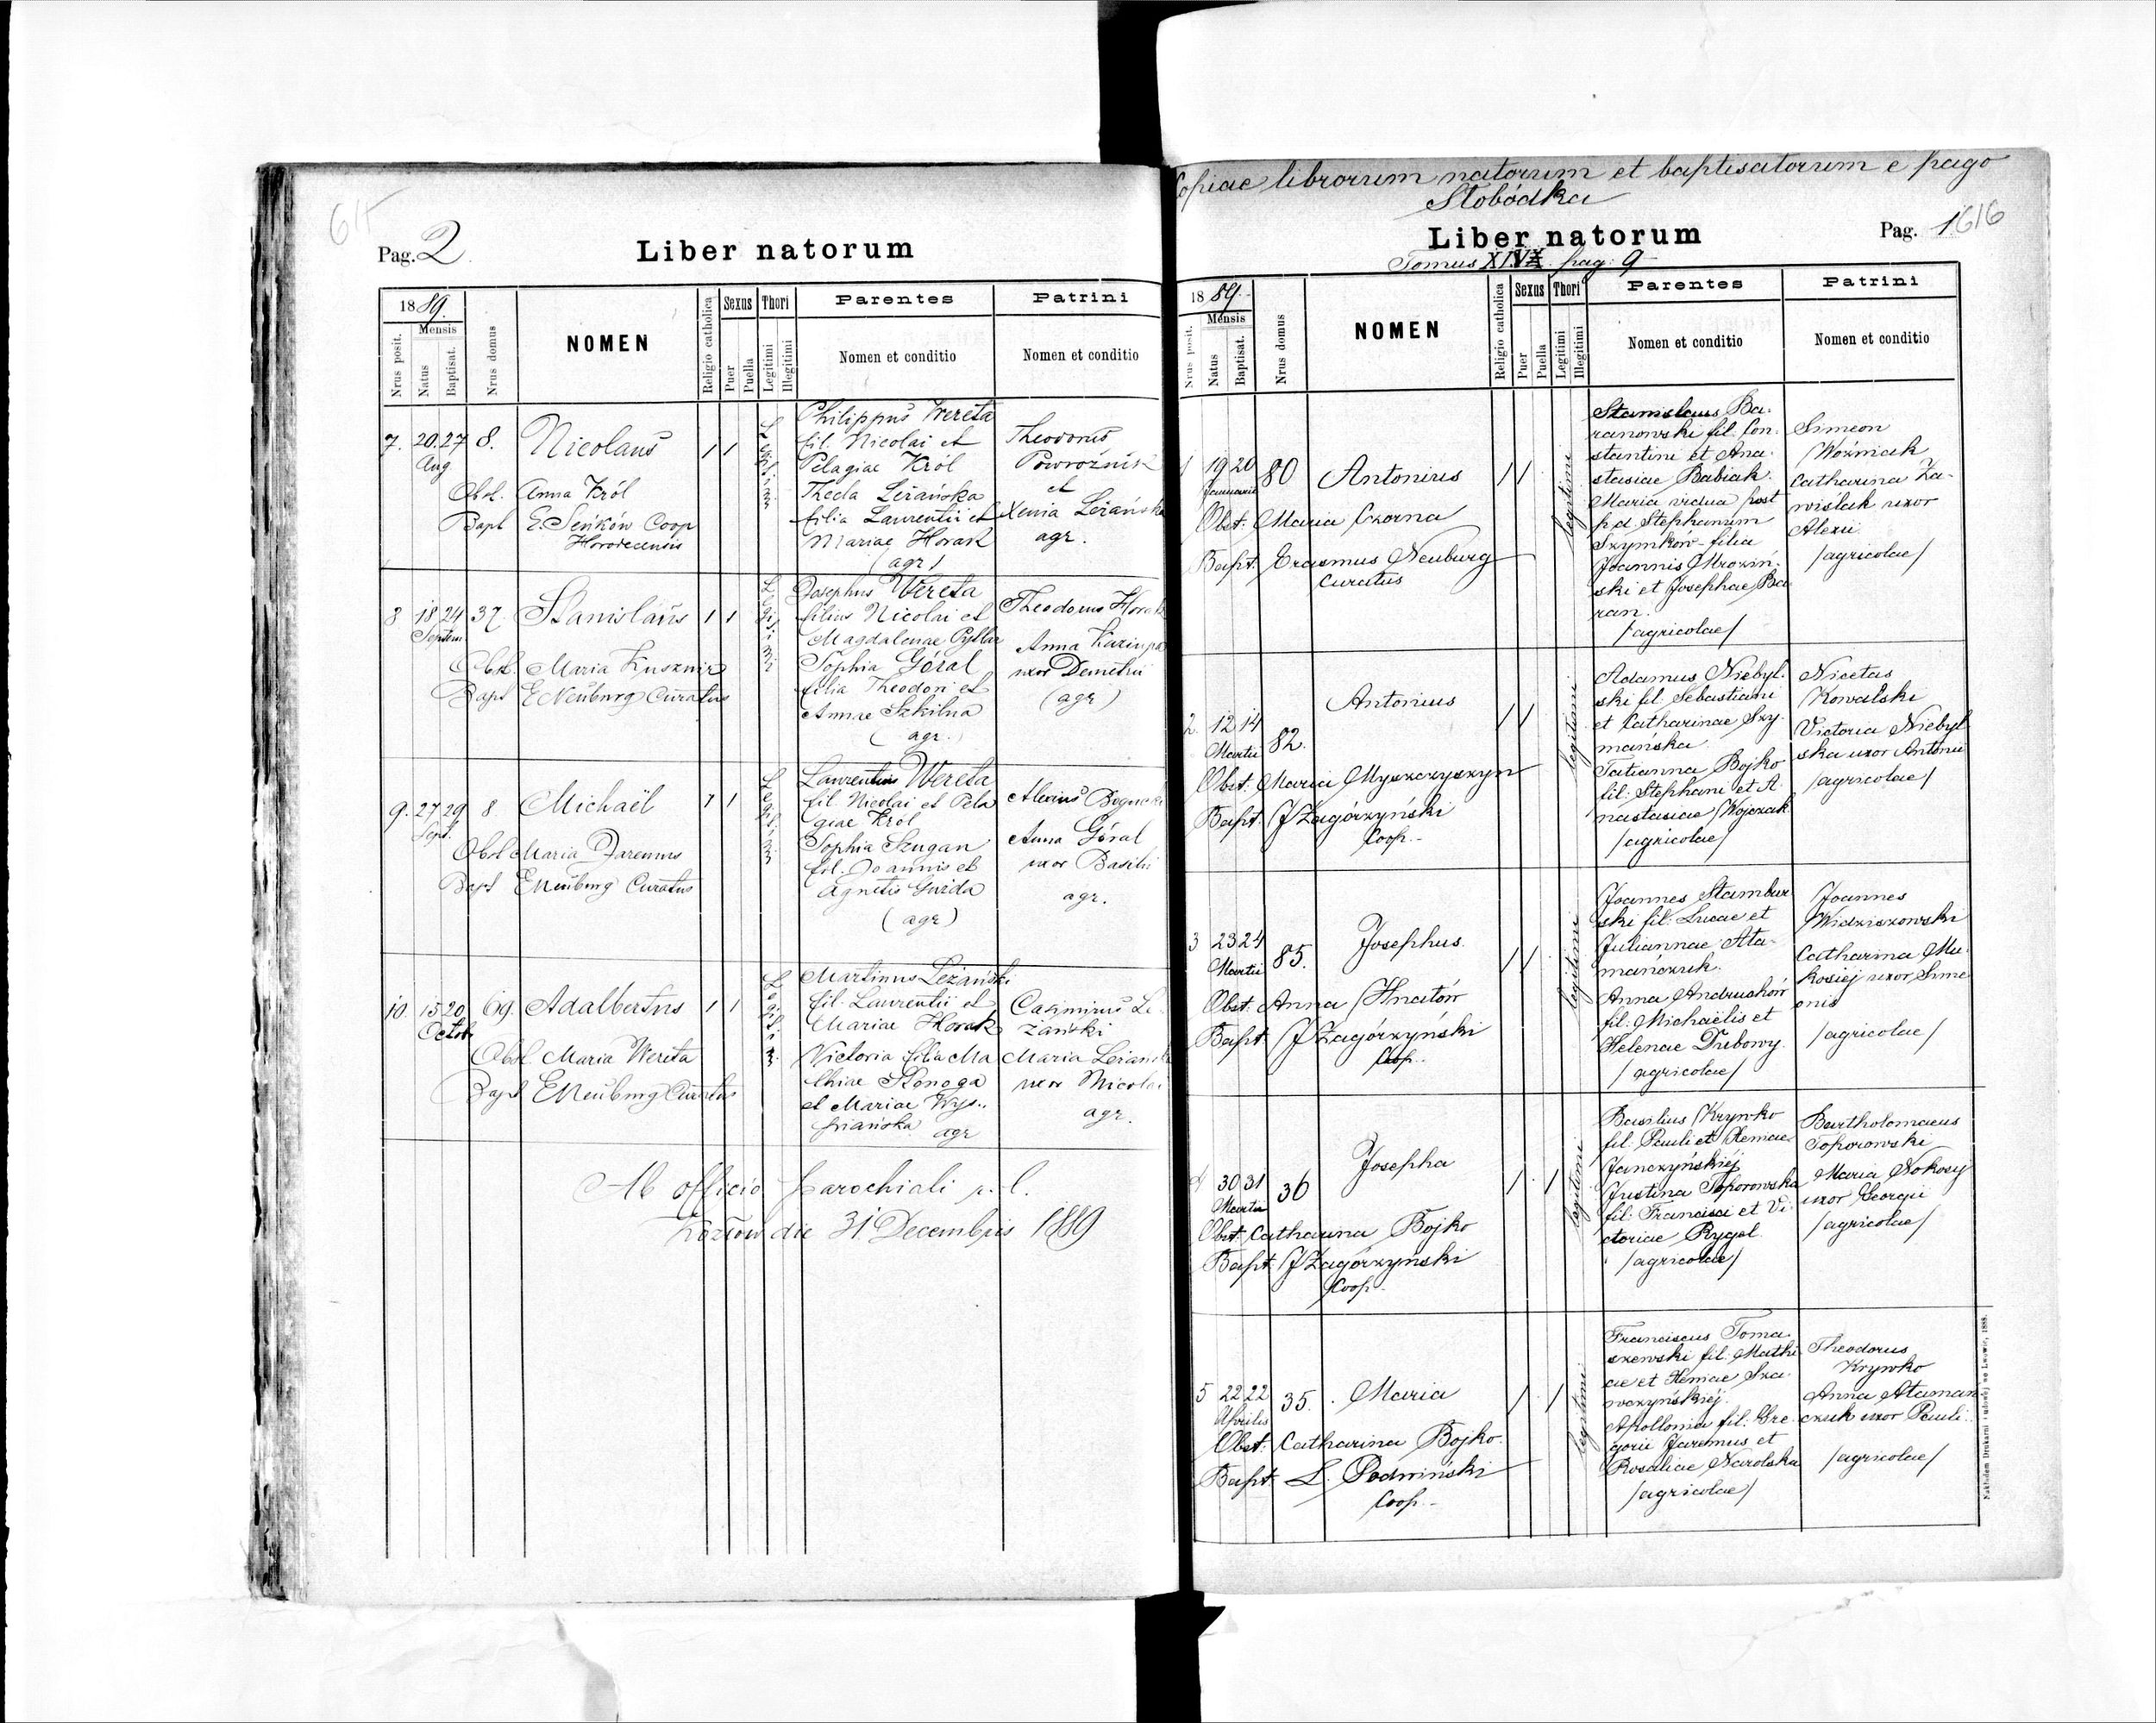 615
Pag. 2
Liber natorum
1889.
Mensis
Nrus posit.
Natus
Baptisat.
Nrus domus
NOMEN
Religio catholica
Sexus
Puer
Puella
Thori
Legitimi
Illegitimi
Parentes
Nomen et conditio
Patrini
Nomen et conditio
7. 20. 27 8. Nicolaus 1 1
Aug
Obst. Anna Król
Bapt E. Seńków Coop
Horodecensis
Philippus Wereta
fil. Nicolai et
Pelagiae Król
Thecla Leżańska
filia Laurentii et
Mariae Horak
(agr)
Theodorus
Powroźnik
et
Xenia Leżańska
agr.
8 18 24 37. Stanislaus 1 1
Septem
Obst. Maria Kusznir
Bapt E Neuburg Curatus
Josephus Wereta
filius Nicolai et
Magdalenae
Sophia Góral
filia Theodori et
Annae Szkilna
(agr.)
Theodorus Horak
Anna
uxor Demetrii
(agr)
9. 27 29 8 Michaël 1 1
Sept.
Obst Maria Jaremus
Bapt E Neuburg Curatus
Laurentius Wereta
fil. Nicolai et Pela
giae Król
Sophia Szugan
fil. Joannis et
Agnetis Gwizda
(agr)
Alexius
Anna Góral
uxor Basilii
agr.
10. 15 20 69. Adalbertus 1 1
Octob
Obst Maria Wereta
Bapt E Neuburg Curatus
Martinus Leżański
fil. Laurentii et
Mariae Horak
Victoria filia Ma
thiae Stonoga
et Mariae Wys..
priańska agr
Casimirus Le
żański
Maria Leżańska
uxor Nicolai
agr.
Ab officio parochiali r. l.
Kozłów die 31 Decembris 1889
Copiae librorum natorum et baptisatorum e pago
Słobódka
Liber natorum
Pag. 1 616
Tomus XIV pag: 9
1889.
Mensis
Nrus posit.
Natus
Baptisat.
Nrus domus
NOMEN
Religio catholica
Sexus
Puer
Puella
Thori
Legitimi
Illegitimi
Parentes
Nomen et conditio
Patrini
Nomen et conditio
1 19 20 80 Antonius 1 1 legitimi
Januarii
Obst. Maria Czorna
Bapt. Erasmus Neuburg
Curatus
Stanislaus Ba-
ranowski fil. Con-
stantini et Ana-
stasiae Babiak.
Maria vidua post
p.d. Stephanum
Szymków - filia
Joannis Mrozin-
ski et Josephae Ba
ran.
/agricolae/
Simeon
Woźniak
Catharina Za-
wiślak uxor
Alexii
/agricolae/
2. 12 14 82. Antonius 1 1 legitimi
Martii
Obst. Maria Myszczyszyn
Bapt. J Zagórzyński
Coop.-
Adamus Niebyl-
ski fil. Sebastiani
et Catharinae Szy-
mańska.
Tatianna Bojko
fil: Stephani et A-
nastasiae Wojczak
/agricolae/
Nicetas
Kowalski
Victoria Niebyl
ska uxor Antonii
/agricolae/
3 23 24 85. Josephus. 1 1 legitimi
Martii
Obst. Anna Hnatów
Bapt. J Zagórzyński
Coop.-
Joannes Stambur
ski fil: Lucae et
Juliannae Ata-
mańczuk.
Anna Andruchów
fil: Michaëlis et
Helenae Dubowy.
/agricolae/
Joannes
Widziszowski
Catharina Mu-
kosiej uxor Sime
onis
/agricolae/
4 30 31 36 Josepha 1 1 legitimi
Martii
Obst. Catharina Bojko
Bapt. J Zagórzyński
Coop.-
Basilius Krywko
fil: Pauli et Xeniae
Janczyńskiéj
Justina Toporowska
fil: Francisci et Vi-
ctoriae Rygel.
/agricolae/
Bartholomaeus
Toporowski
Maria Mokosij
uxor Georgii
/agricolae/
5 22 22 35. Maria 1 1 legitimi
Aprilis
Obst: Catharina Bojko.
Bapt. L. Podwiński
Coop.-
Franciscus Toma-
szewski fil: Mathi
ae et Xeniae Sza-
wczyńskiéj.
Apollonia fil: Gre-
gorii Jaremus et
Rosaliae Narolska
/agricolae/
Theodorus
Krywko
Anna Ataman
czuk uxor Pauli.
/agricolae/
Nakładem Drukarni Ludowej we Lwowie, 1888.